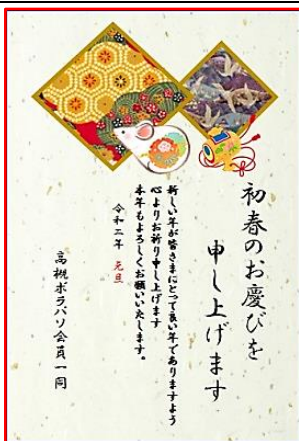 初春のお慶びを
申し上げます
新しい年が皆さまにとって良い年でありますよう
心よりお祈り申し上げます
本年もよろしくお願いいたします。
令和二年 元旦
高槻ボラパソ会員一同